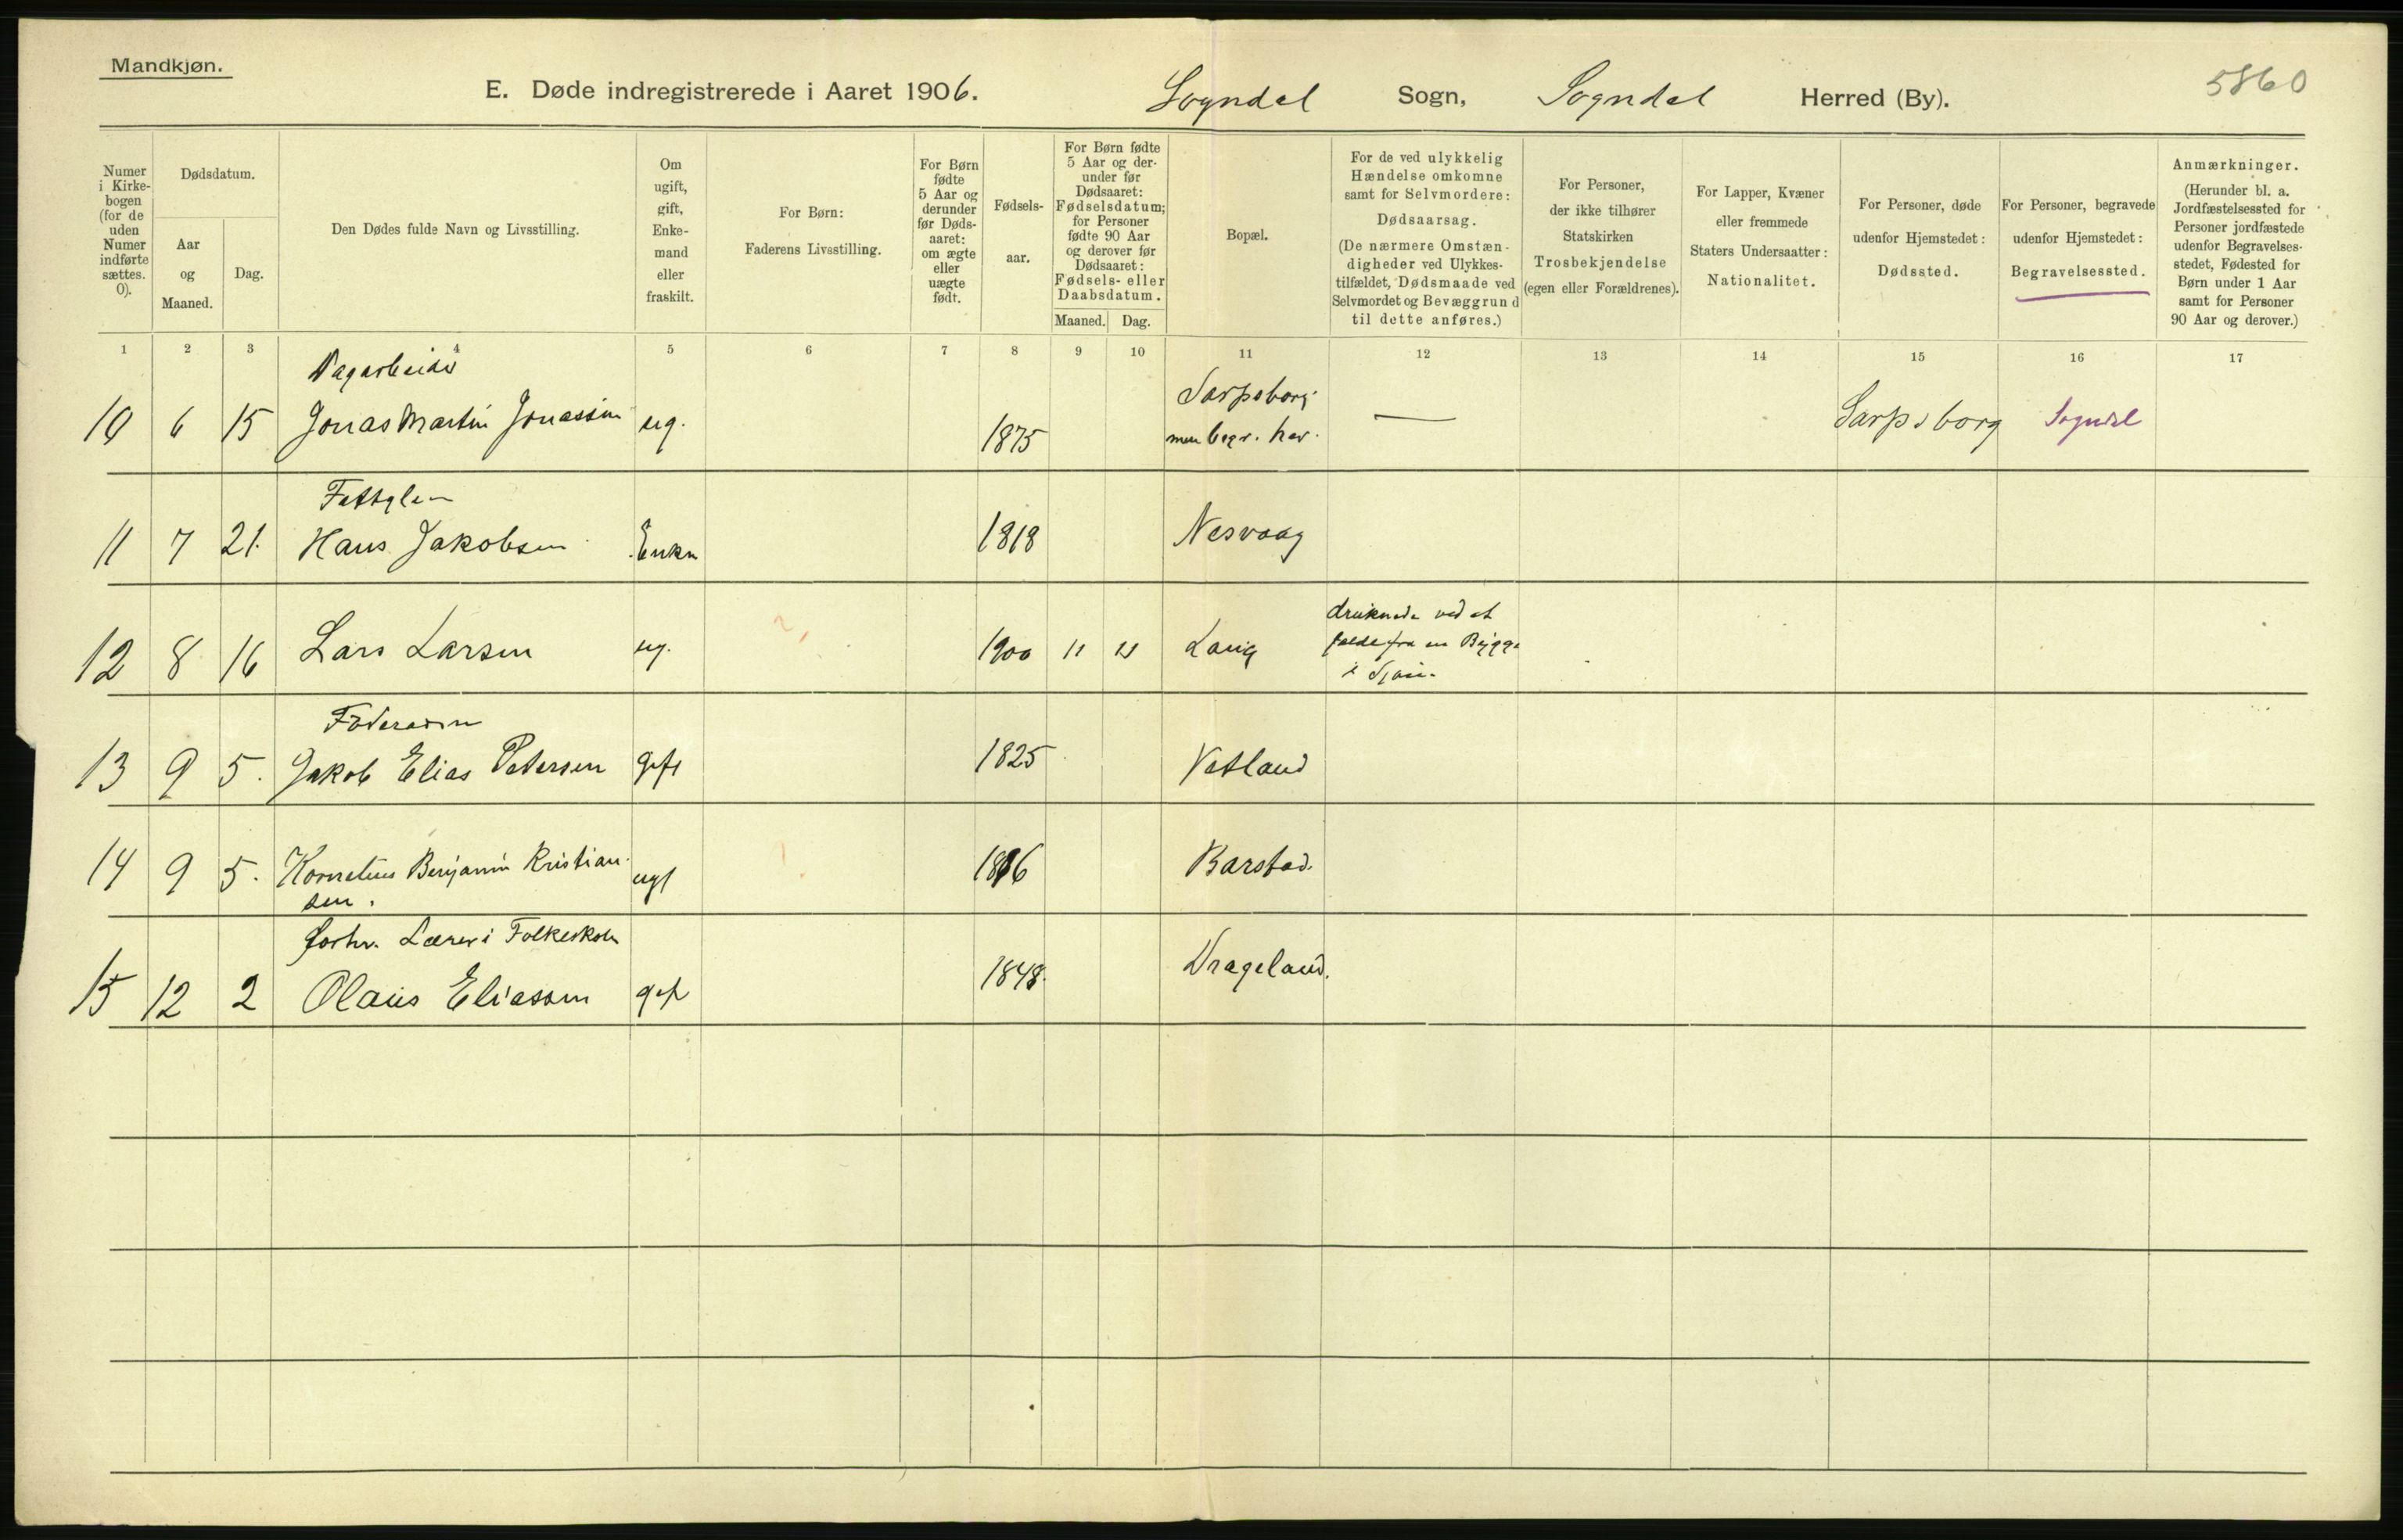 Mandkjøn.
E. Døde indregistrerede i Aaret 1906. Sogndal Sogn, Sogndal Herred (By).
5860
Numer
i Kirke-
bogen
(for de
uden
Numer
indførte
sættes.
0).
Dødsdatum.
Aar
og
Maaned.
Dag.
Den Dødes fulde Navn og Livsstilling.
Om
ugift,
gift,
Enke-
mand
eller
fraskilt.
For Børn:
Faderens Livsstilling.
For Børn
fødte
5 Aar og
derunder
før Døds-
aaret:
om ægte
eller
uægte
født.
Fødsels-
aar.
For Børn fødte
5 Aar og der-
under før
Dødsaaret:
Fødselsdatum;
for Personer
fødte 90 Aar
og derover før
Dødsaaret:
Fødsels- eller
Daabsdatum.
Maaned. Dag.
Bopæl.
For de ved ulykkelig
Hændelse omkomne
samt for Selvmordere:
Dødsaarsag.
(De nærmere Omstæn-
digheder ved Ulykkes-
tilfældet, Dødsmaade ved
Selvmordet og Bevæggrund
til dette anføres.)
For Personer,
der ikke tilhører
Statskirken
Trosbekjendelse
(egen eller Forældrenes).
For Lapper, Kvæner
eller fremmede
Staters Undersaatter:
Nationalitet.
For Personer, døde
udenfor Hjemstedet:
Dødssted.
For Personer, begravede
udenfor Hjemstedet:
Begravelsessted.
Anmærkninger.
(Herunder bl. a.
Jordfæstelsessted for
Personer jordfæstede
udenfor Begravelses-
stedet, Fødested for
Børn under 1 Aar
samt for Personer
90 Aar og derover.)
1 2 3 4 5 6 7 8 9 10 11 12 13 14 15 16 17
Dagarbeider
Sarpsborg
10 6 15 Jonas Martin Jonassen ug. 1875 men begr. her. — Sarpsborg Sogndal
11 7 21. Hans Jakobsen Enkm 1818 Nesvaag
druknede ved at
12 8 16 Lars Larsen ug. 1900 11 falde fra en Brygge
i Sjøen.
Føderaad
13 9 5. Jakob Elias Petersen gift 1825 Vatland
14 9 5. Kornelius Benjamin Kristian- ugt Barstad.
sen.
forhv. Lærer i Folkeskolen
15 12 2 Olaus Eliassen gift 1848. Drageland.